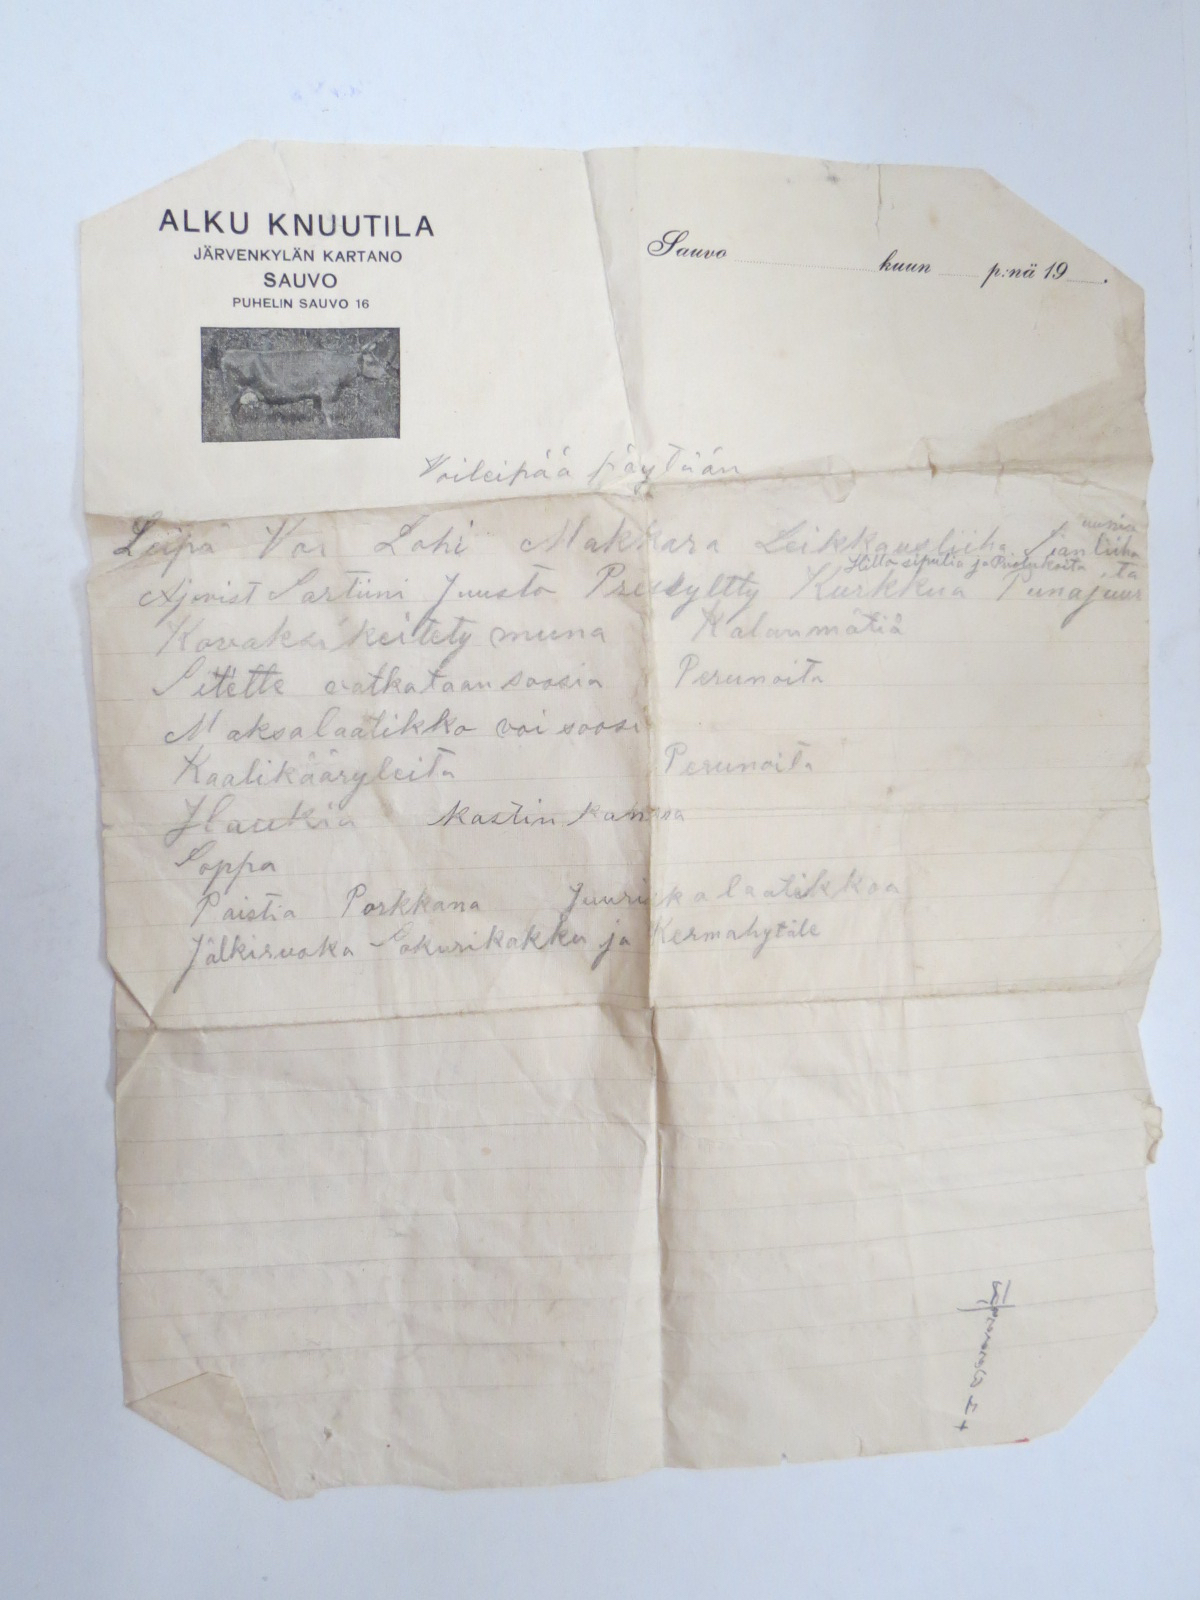 ALKU KNUUTILA
JÄRVENKYLÄN KARTANO
SAUVO
PUHELIN SAUVO 16
Sauvo kuun p:nä 19 .
Voileipää pöytään
Leipä Voi Lohi Makkara Leikkausliiha Sian liiha
Hillo sipulia ja
Ajovist Sartiini Juusto Pressyltty Kurkkua Punajuur ta
Kovaksi keitety muna Kalanmätiä
vatkataan soosia Perunoita
Maksalaatikko voi soosi
Kaalikääryleitä Perunoita
Haukia kastin kanssa
Soppa
Paistia Porkkana Juurikka laatikkoa
Jälkiruoka Sokurikakku ja Kermahytäle